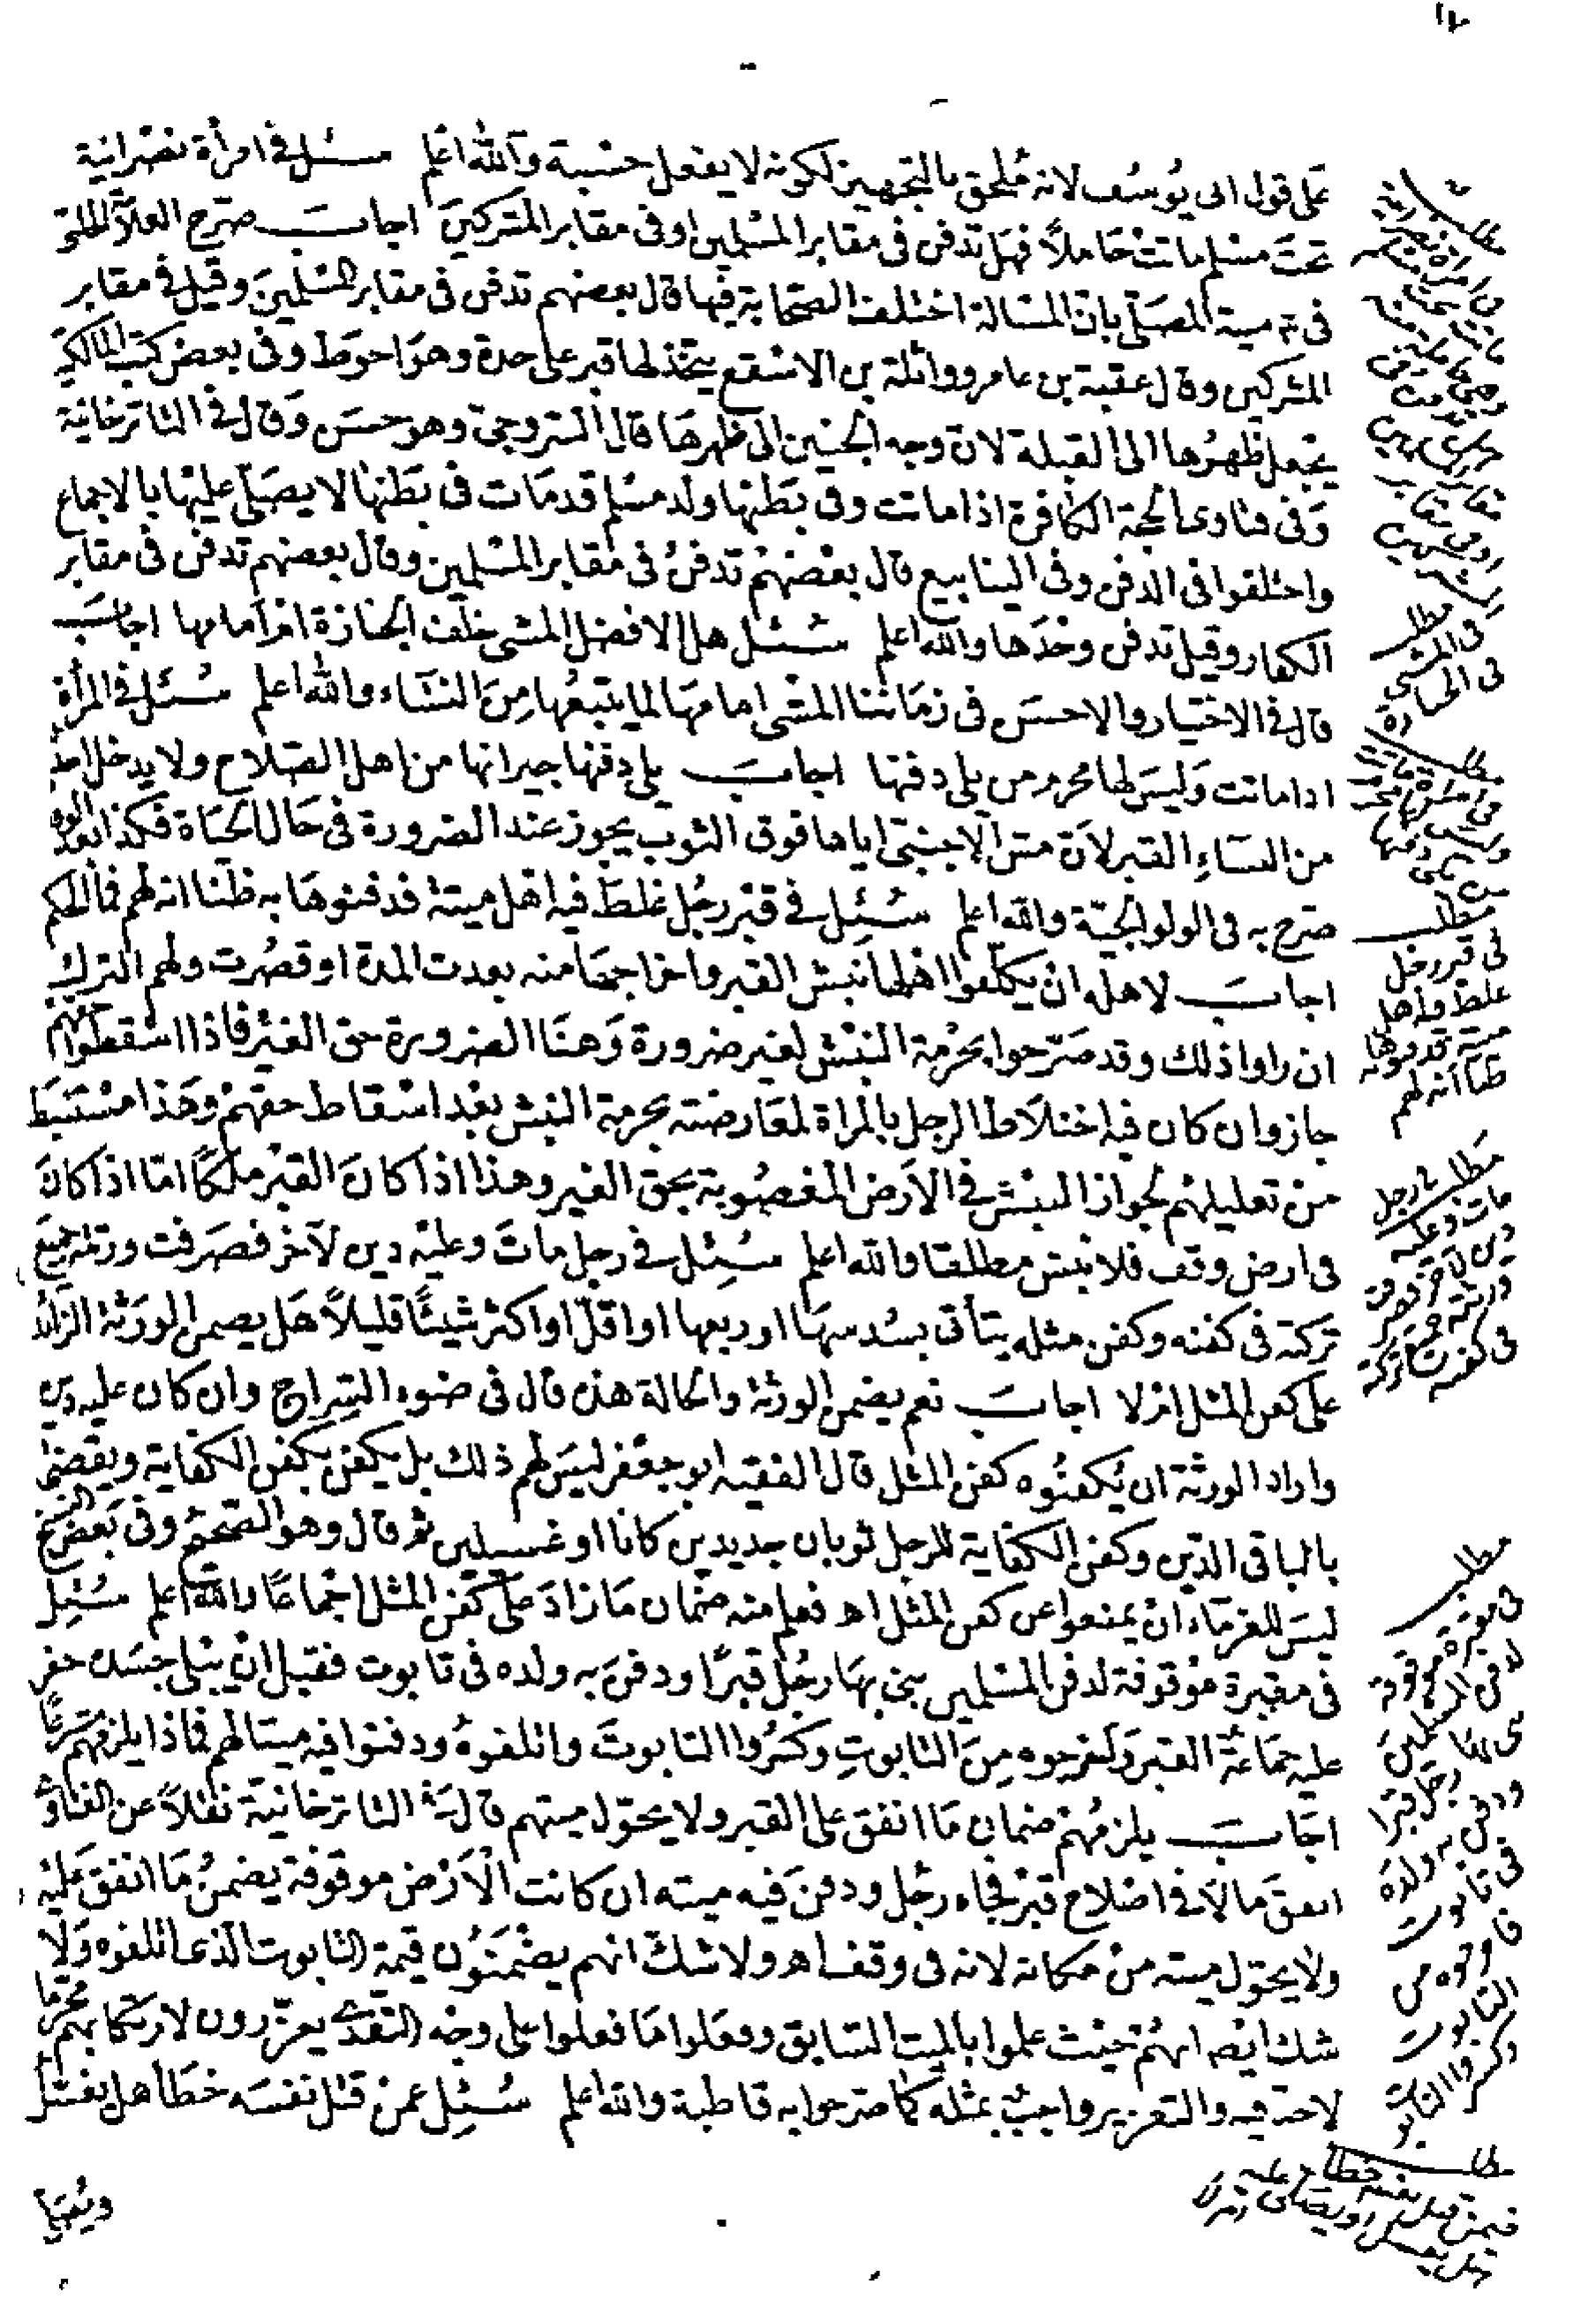 ١٢
على قول ابى يوسف لانه ملحق بالتجهيز لكونه لا يفعل حسبة والله اعلم سئل فى امرأة نصرانية
تحت مسلم ماتت حاملاً فهل تدفن فى مقابر المسلمين او فى مقابر المشركين اجاب صرح العلامة الحلبى
فى منية المصلى بان المسالة اختلف الصحابة فيها قال بعضهم تدفن فى مقابر المسلمين وقيل فى مقابر
المشركين وقال عقبة بن عامر وواثلة بن الاسقع يتخذ لها قبر على حدة وهو احوط وفى بعض كتب المالكية
يجعل ظهرها الى القبلة لان وجه الجنين الى ظهرها قال السروجى وهو حسن وقال فى التاترخانية
وفى فتاوى الحجة الكافرة اذا ماتت وفى بطنها ولد مسلم قد مات فى بطنها لا يصلى عليها بالاجماع
واختلفوا فى الدفن وفى الينابيع قال بعضهم تدفن فى مقابر المسلمين وقال بعضهم تدفن فى مقابر
الكفار وقيل تدفن وحدها والله اعلم سئل هل الافضل المشى خلف الجنازة ام امامها اجاب
قال فى الاختيار والاحسن فى زماننا المشى امامها لما يتبعها من النساء والله اعلم سئل فى المرأة
اذا ماتت وليس لها محرم من يلى دفنها اجاب يلى دفنها جيرانها من اهل الصلاح ولا يدخل احد
من النساء القبر لان مس الاجنبى اياها فوق الثوب يجوز عند الضرورة فى حال الحياة فكذا بعد الموت
صرح به فى الولوالجية والله اعلم سئل فى قبر رجل غلط فيه اهل ميتة فدفنوها به ظنا انه لهم فما الحكم
اجاب لاهله ان يكلفوا اهلها نبش القبر واخراجها منه بعدت المدة او قصرت ولهم الترك
ان راوا ذلك وقد صرحوا بحرمة النبش لغير ضرورة وهنا الضرورة حق الغير فاذا اسقطوا حقهم
جاز وان كان فيه اختلاط الرجل بالمراة لمعارضته بحرمة النبش بعد اسقاط حقهم وهذا مستنبط
من تعليلهم لجواز النبش فى الارض المغصوبة بحق الغير وهذا اذا كان القبر ملكا اما اذا كان
فى ارض وقف فلا نبش مطلقا والله اعلم سئل فى رجل مات وعليه دين لآخر فصرفت ورثته جميع
تركته فى كفنه وكفن مثله يتأتى بسدسها او ربعها او اقل او اكثر شيئا قليلاً هل يضمن الورثة الزائد
على كفن المثل ام لا اجاب نعم يضمن الورثة والحالة هذه قال فى ضوء السراج وان كان عليه دين
واراد الورثة ان يكفنوه كفن المثل قال الفقيه ابو جعفر ليس لهم ذلك بل يكفن بكفن الكفاية ويقضى
بالباقى الدين وكفن الكفاية للرجل ثوبان جديدين كانا او غسيلين ثم قال وهو الصحيح وفى بعض النسخ
ليس للغرماء ان يمنعوا عن كفن المثل اه فعلم منه ضمان ما زاد على كفن المثل اجماعا والله اعلم سئل
فى مقبرة موقوفة لدفن المسلمين بنى بها رجل قبرا ودفن به ولده فى تابوت فقبل ان يبلى جسده حفر
عليه جماعة القبر واخرجوه من التابوت وكسروا التابوت واتلفوه ودفنوا فيه ميتا لهم فماذا يلزمهم شرعا
اجاب يلزمهم ضمان ما انفق على القبر ولا يحول ميتهم قال فى التاترخانية نقلاً عن الفتاوى
انفق مالا فى اصلاح قبر فجاء رجل ودفن فيه ميته ان كانت الارض موقوفة يضمن ما انفق عليه
ولا يحول ميته من مكانه لانه فى وقف اه ولا شك انهم يضمنون قيمة التابوت الذى اتلفوه ولا
شك ايضا انهم حيث علموا بالميت السابق وفعلوا ما فعلوا على وجه التعدى يعزرون لارتكابهم محرما
لا حد فيه والتعزير واجب بمثله كما صرحوا به قاطبة والله اعلم سئل عمن قتل نفسه خطأ هل يغسل
ويصلى
مطلب
فى المشى
فى الجنازة
مطلب
فى قبر رجل
غلط فيه اهل
ميتة فدفنوها به
ظنا انه لهم
مطلب فى رجل
مات وعليه
دين لآخر فصرفت
ورثته جميع تركته
فى كفنه
مطلب
فى مقبرة موقوفة
لدفن المسلمين
بنى بها رجل قبرا
ودفن به ولده
فى تابوت
فاخرجوه من
التابوت
وكسروا التابوت
مطلب
فيمن قتل نفسه خطأ
هل يغسل ويصلى عليه ام لا